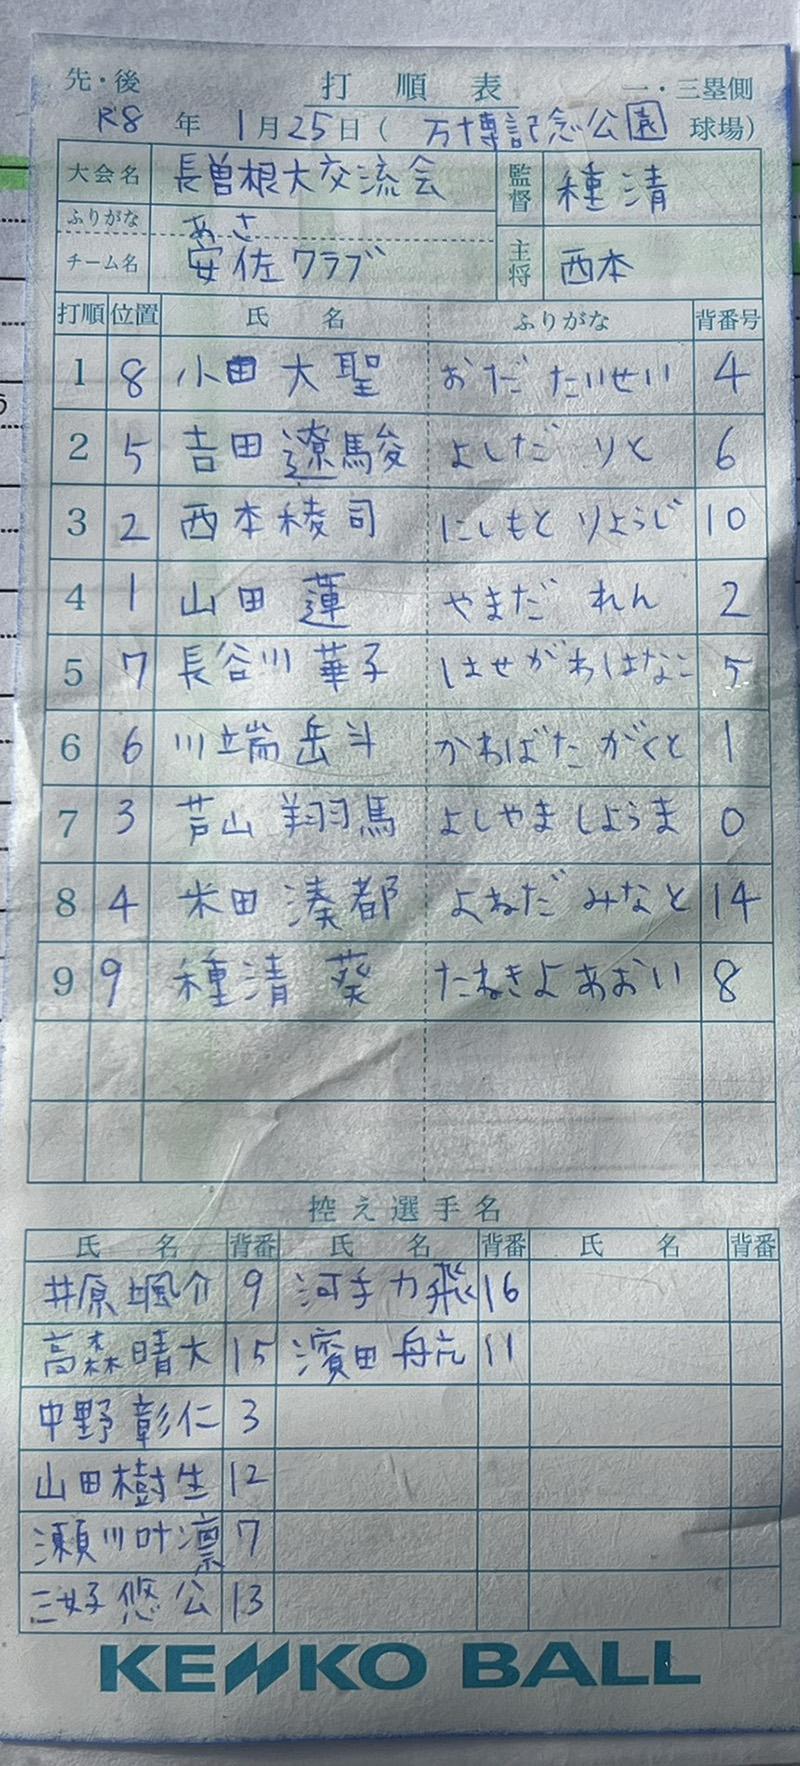 先・後 打順表 一・三塁側
R8年 1月25日(万博記念公園 球場)
大会名 長曽根大交流会 監督 種清
ふりがな あさ
チーム名 安佐クラブ 主将 西本
打順 位置 氏名 ふりがな 背番号
1 8 小田 大聖 おだ たいせい 4
2 5 吉田 遼馬駿 よしだ りと 6
3 2 西本 稜司 にしもと りょうじ 10
4 1 山田 蓮 やまだ れん 2
5 7 長谷川 華子 はせがわ はなこ 5
6 6 川端 岳斗 かわばた がくと 1
7 3 芦山 翔馬 よしやま しょうま 0
8 4 米田 湊都 よねだ みなと 14
9 9 種清 葵 たねきよ あおい 8
控え選手名
氏名 背番 氏名 背番 氏名 背番
井原 颯介 9 河手 力飛 16
高森 晴大 15 濱田 舟亢 11
中野 彰仁 3
山田 樹生 12
瀬川 叶凛 7
三好 悠公 13
KENKO BALL